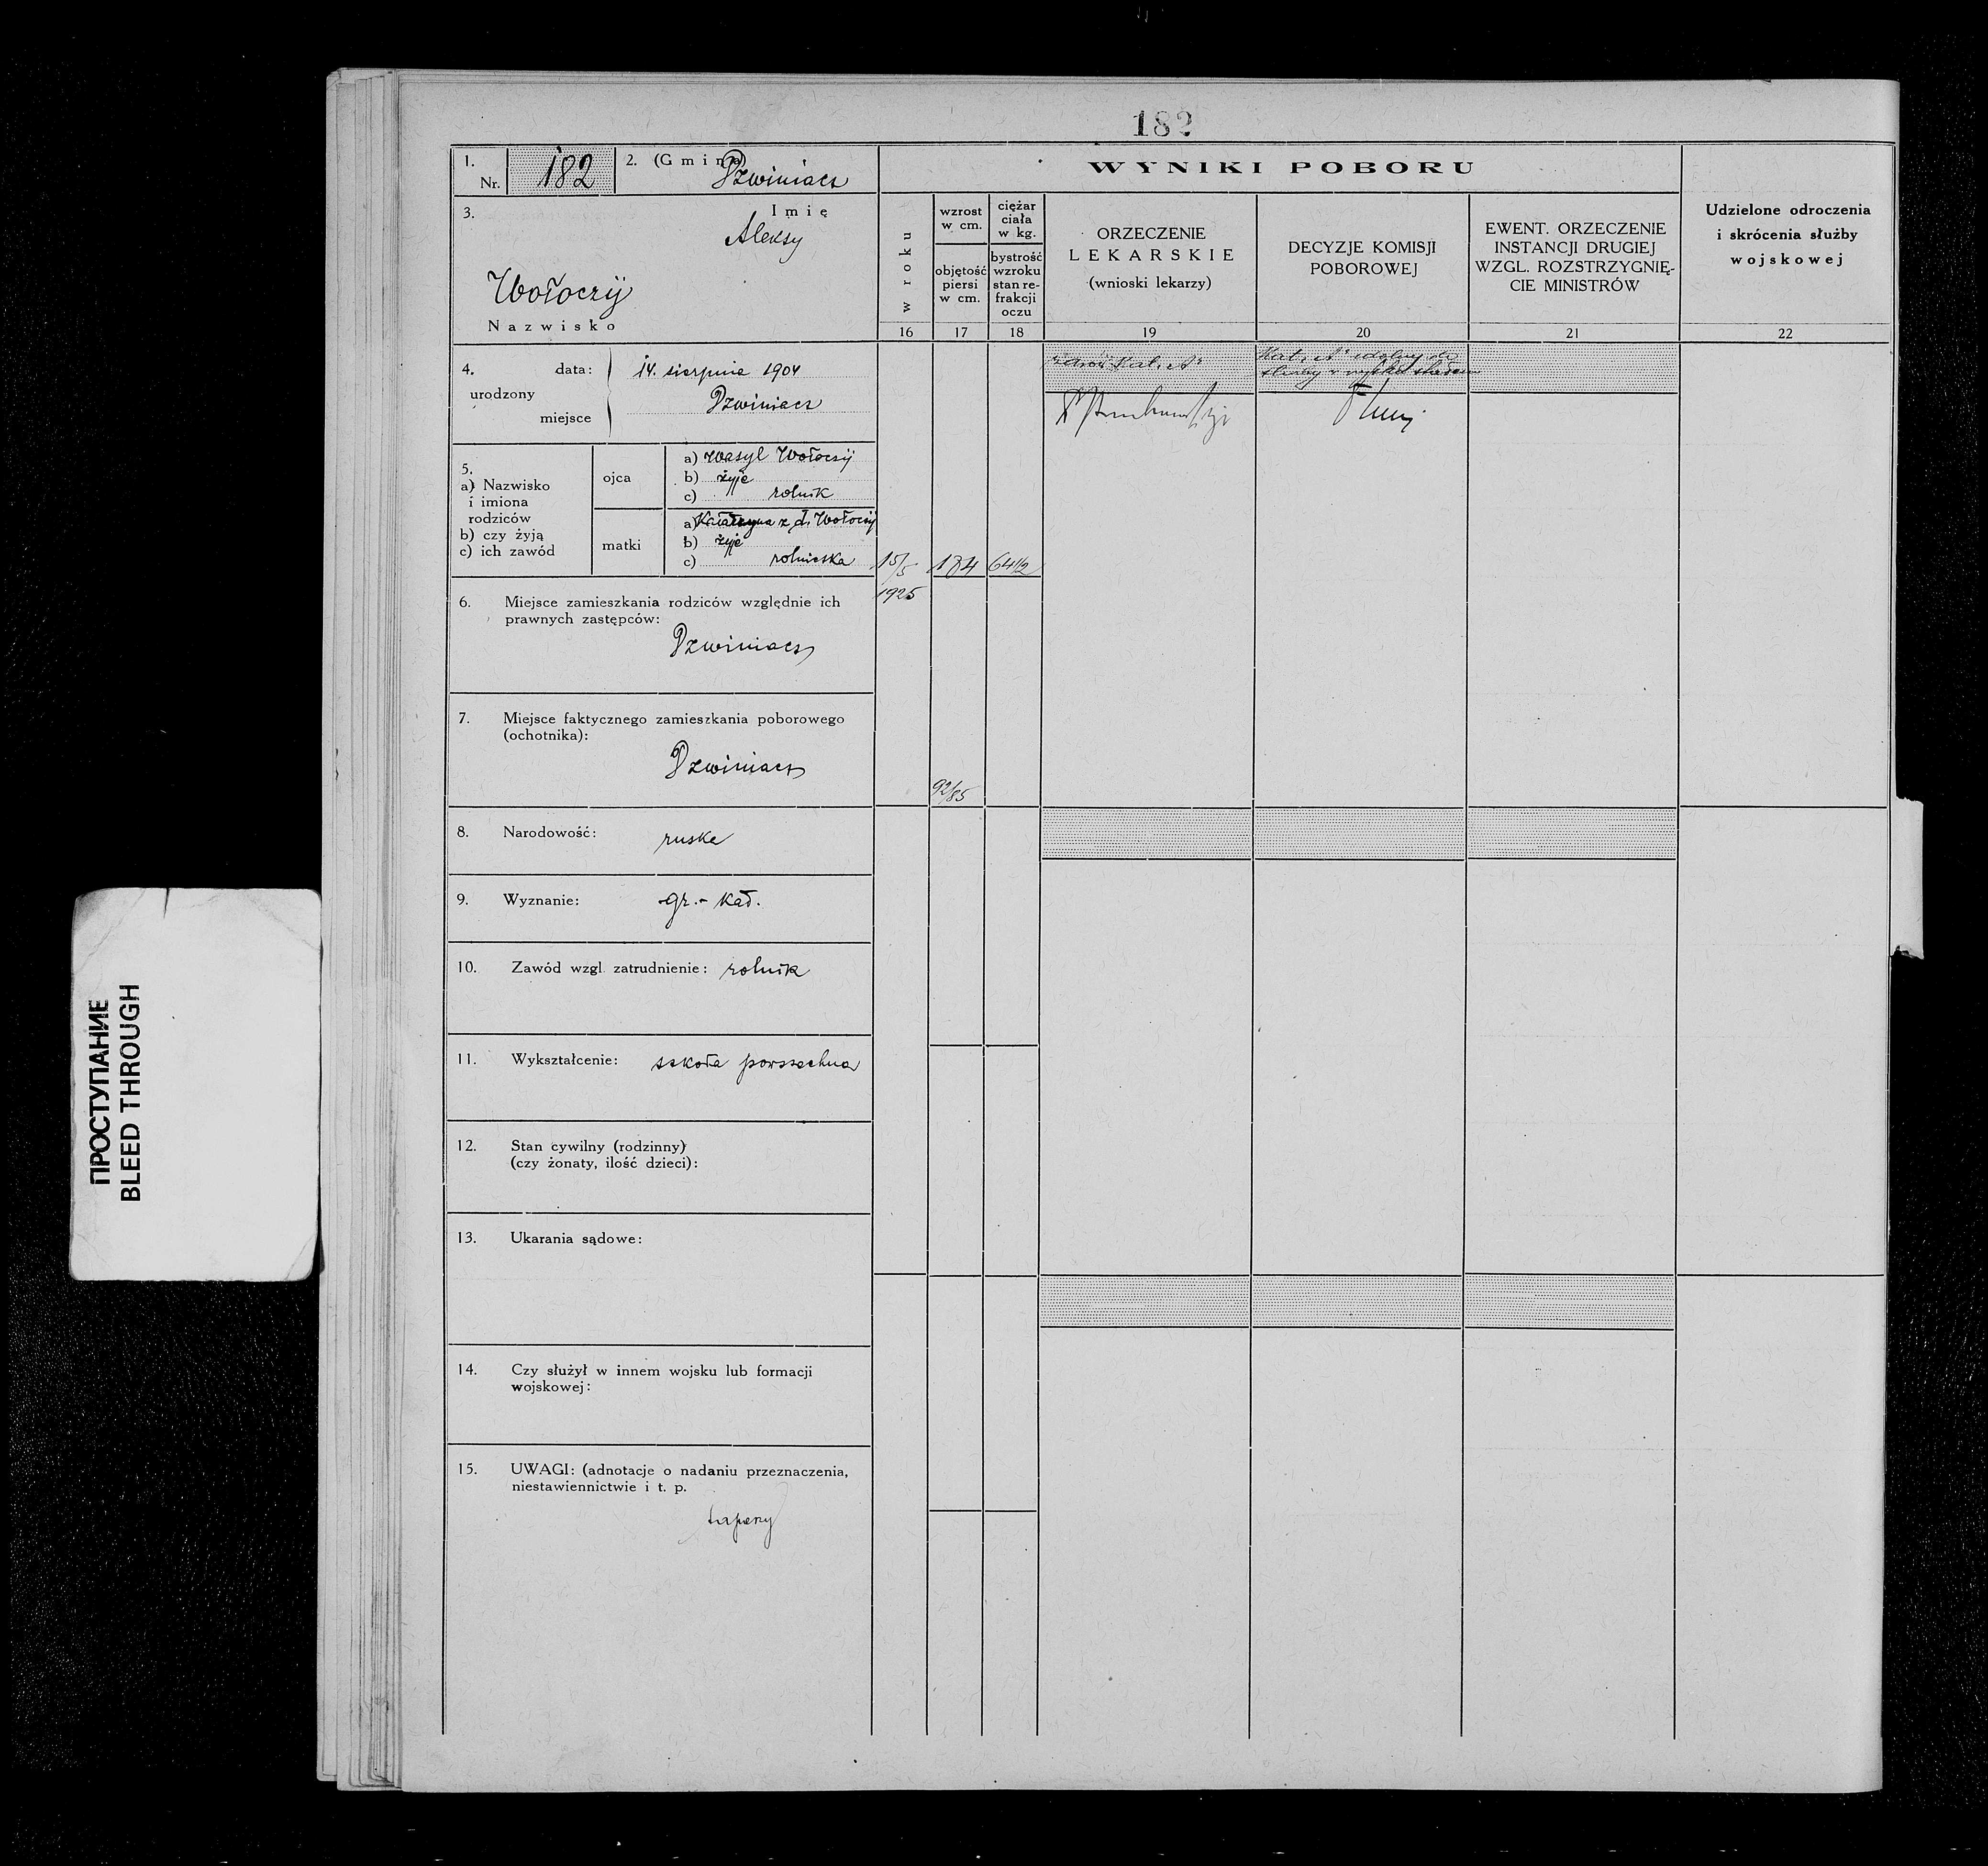 182
1.
Nr. 182
2. (Gmina) Dzwiniacz
3.
Imię
Aleksy
Wołoczij
Nazwisko
WYNIKI POBORU
w roku
wzrost
w cm.
objętość
piersi
w cm.
ciężar
ciała
w kg.
bystrość
wzroku
stan re-
frakcji
oczu
ORZECZENIE
LEKARSKIE
(wnioski lekarzy)
DECYZJE KOMISJI
POBOROWEJ
EWENT. ORZECZENIE
INSTANCJI DRUGIEJ
WZGL. ROZSTRZYGNIĘ-
CIE MINISTRÓW
Udzielone odroczenia
i skrócenia służby
wojskowej
16 17 18 19 20 21 22
4.
urodzony
data: 14. sierpnia 1904
miejsce Dzwiniacz
zdrów Kat. A
Kat. A zdolny do
służby
5.
a) Nazwisko
i imiona
rodziców
b) czy żyją
c) ich zawód
ojca
a) Wasyl Wołoczij
b) żyje
c) rolnik
matki
a) Katarzyna z d. Wołoczij
b) żyje
c) rolniczka
15/5
1925
174
64 1/2
6. Miejsce zamieszkania rodziców względnie ich
prawnych zastępców:
Dzwiniacz
7. Miejsce faktycznego zamieszkania poborowego
(ochotnika):
Dzwiniacz
92/85
8. Narodowość: ruska
9. Wyznanie: gr.-kat.
10. Zawód wzgl. zatrudnienie: rolnik
11. Wykształcenie: szkoła powszechna
12. Stan cywilny (rodzinny)
(czy żonaty, ilość dzieci):
13. Ukarania sądowe:
14. Czy służył w innem wojsku lub formacji
wojskowej:
15. UWAGI: (adnotacje o nadaniu przeznaczenia,
niestawiennictwie i t. p.
ПРОСТУПАНИЕ
BLEED THROUGH